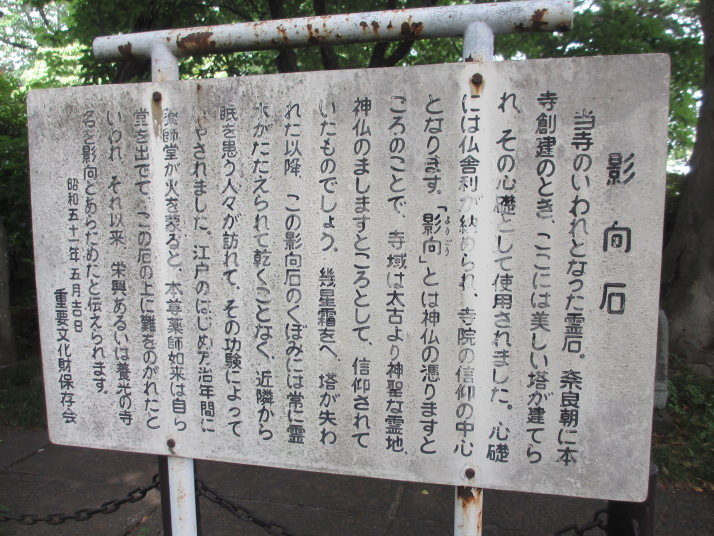 影向石
当寺のいわれとなった霊石。奈良朝に本
寺創建のとき、ここには美しい塔が建てら
れ、その心礎として使用されました。心礎
には仏舎利が納められ、寺院の信仰の中心
となります。「影向」とは神仏の憑りますと
ようごう
ころのことで、寺域は太古より神聖な霊地、
神仏のましますところとして、信仰されて
いたものでしょう。幾星霜をへ、塔が失わ
れた以降、この影向石のくぼみには常に霊
水がたたえられて乾くことなく、近隣から
眼を患う人々が訪れて、その功験によって
いやされました。江戸のはじめ万治年間に
薬師堂が火を蒙ると、本尊薬師如来は自ら
堂を出でて、この石の上に難をのがれたと
いわれ、それ以来、栄興あるいは養光の寺
名を影向とあらためたと伝えられます。
昭和五十一年五月吉日
重要文化財保存会